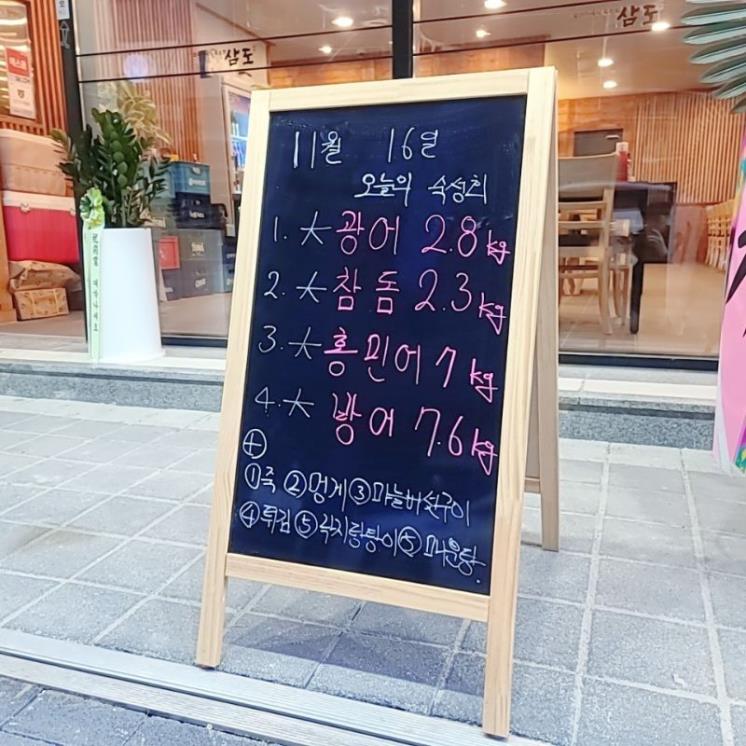 삼도
삼도
11월 16일
오늘의 숙성회
1. ★ 광어 2.8 kg
2. ★ 참돔 2.3 kg
3. ★ 홍민어 7 kg
4. ★ 방어 7.6 kg
⊕
①죽 ②멍게 ③마늘버섯구이
④튀김 ⑤낙지탕탕이 ⑤ 매운탕.